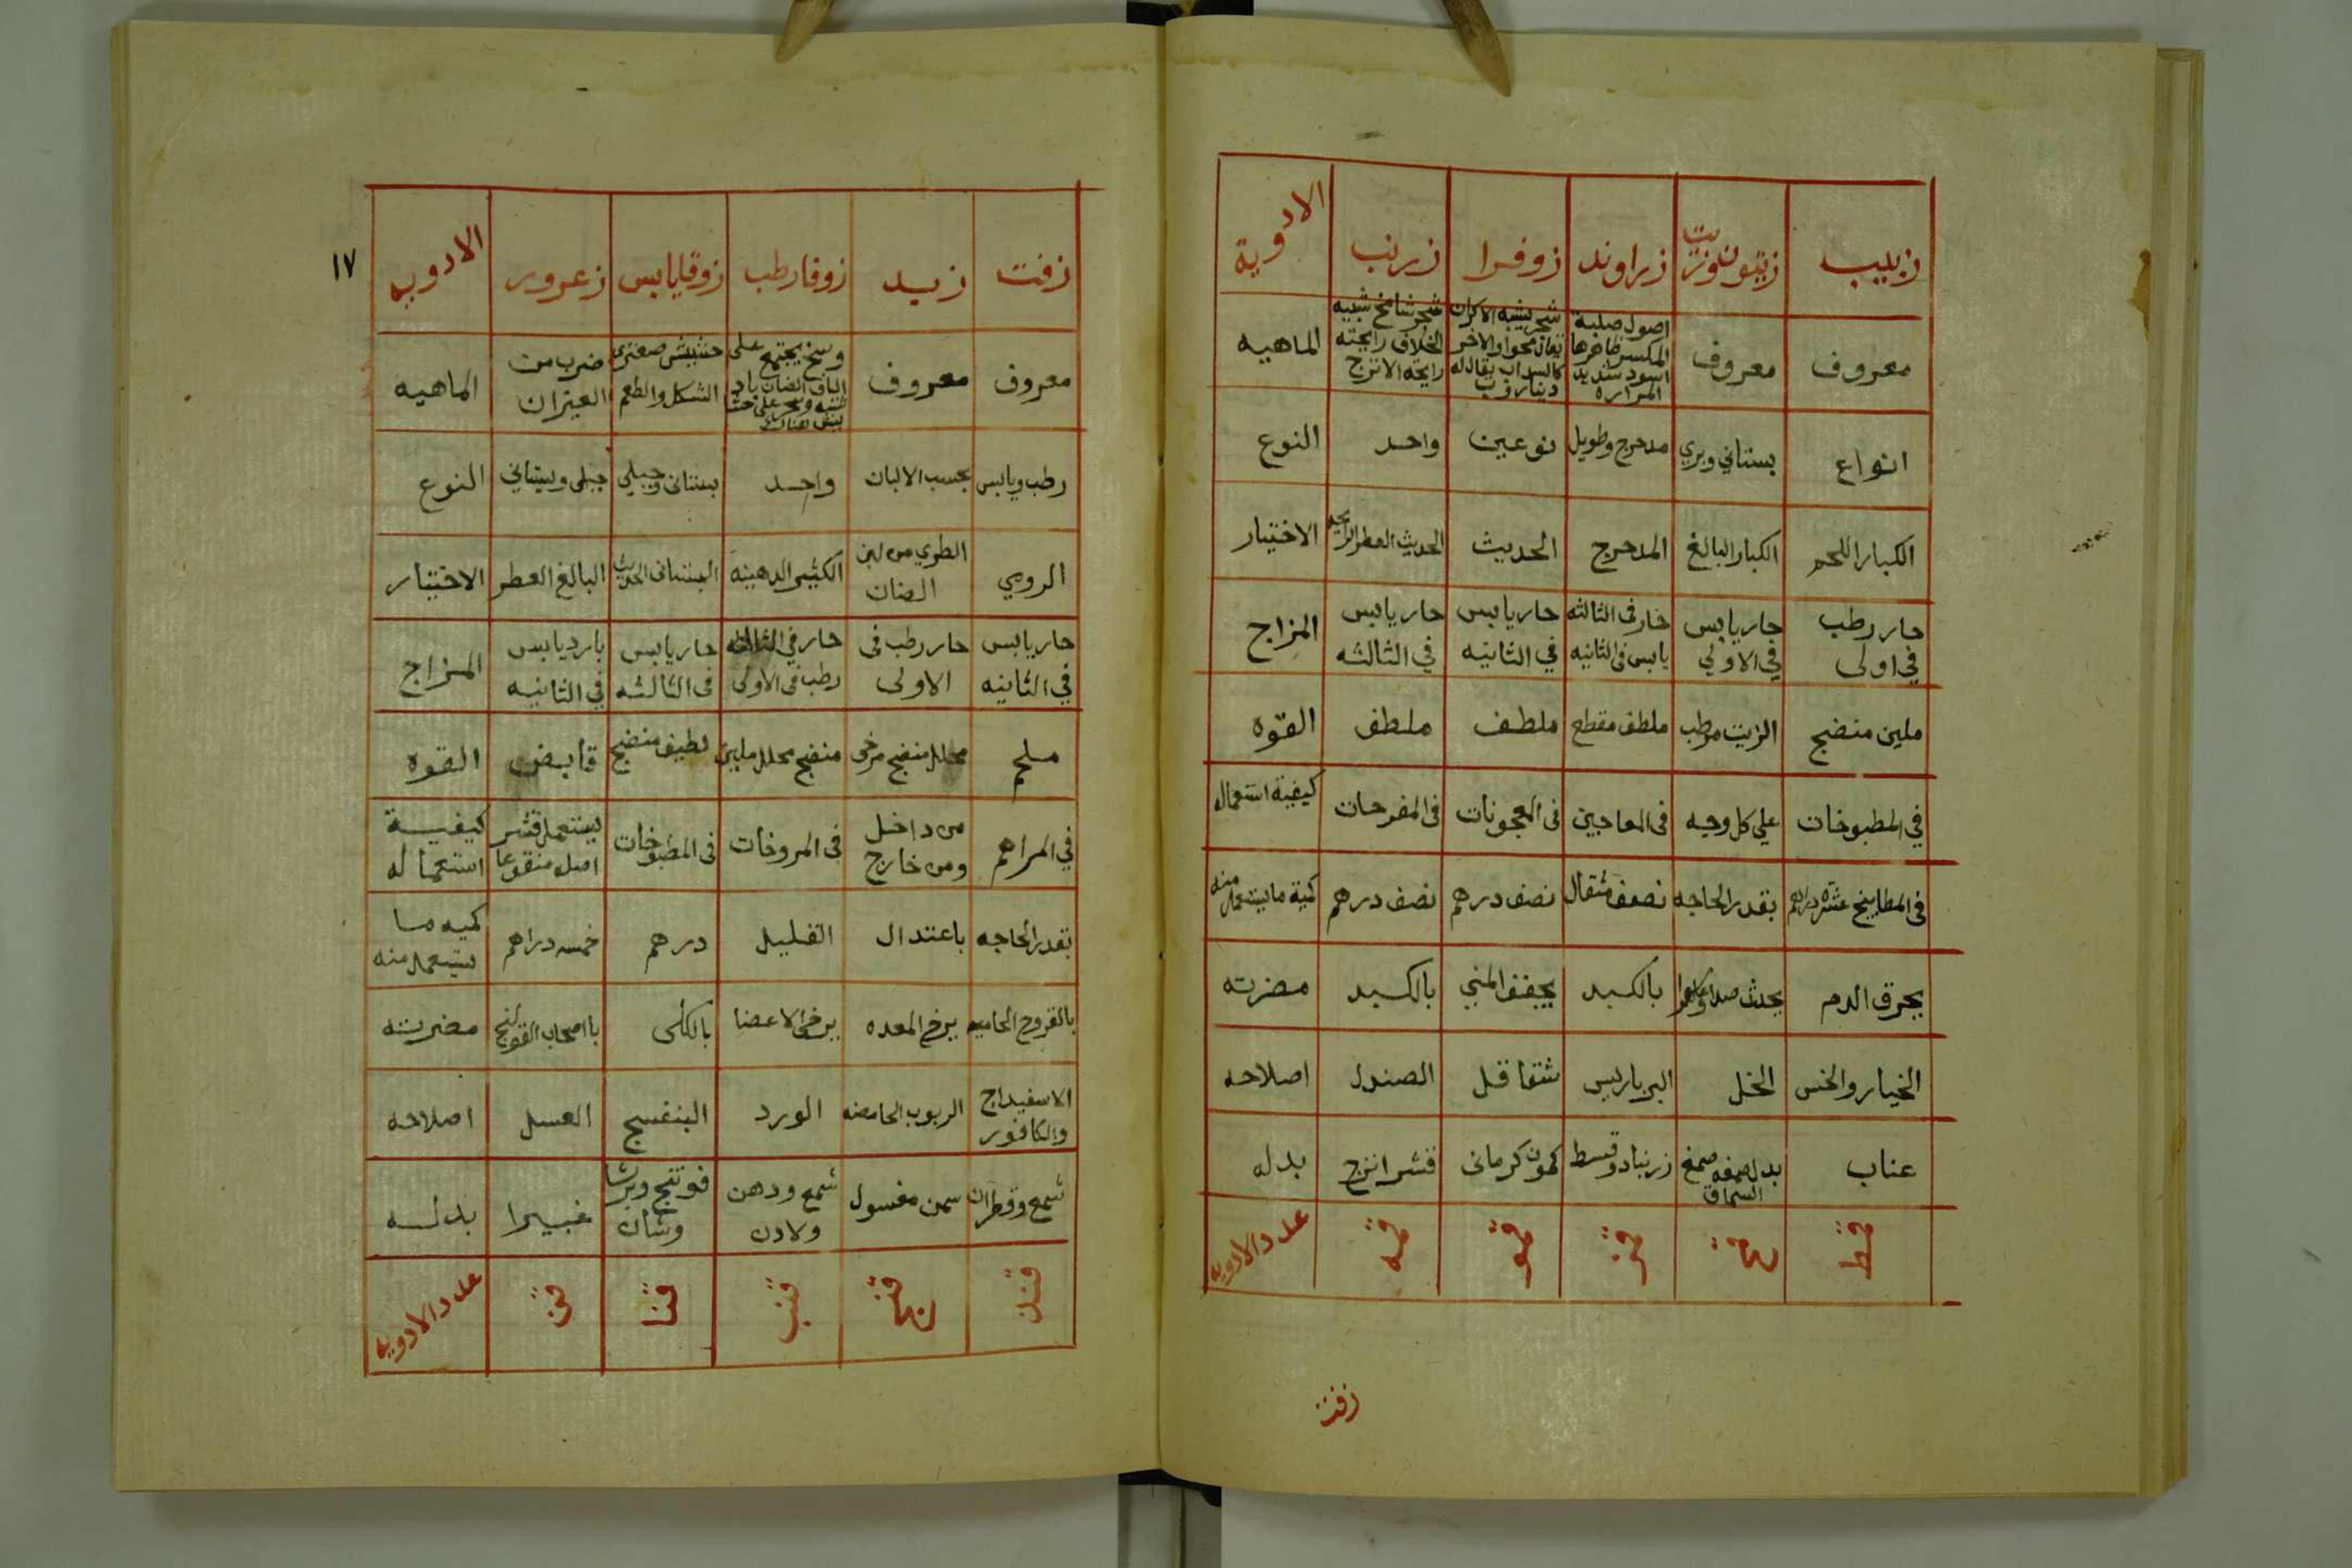 زبيب زيتون وزيت زراوند زوفرا زرنب الادوية
معروف معروف اصول صلبة المكسر ظاهرها اسود شديد المراره شجر يشبه الاكران شجر شامخ شبيه الخلاف رايحته رايحة الاترج الماهيه
انواع بستاني وبري مدحرج وطويل نوعين واحد النوع
الكبار اللحم الكبار البالغ المدحرج الحديث الحديث العطر الرايحه الاختيار
حار رطب في اولى حار يابس في الاولي حار فى الثالثه يابس فى الثانيه حار يابس في الثانيه حار يابس في الثالثه المزاج
ملين منضج الزيت مرطب ملطف مقطع ملطف ملطف القوه
في المطبوخات على كل وجه فى المعاجين فى المعجونات فى المفرحات كيفية استعماله
فى المطابيخ عشرة دراهم بقدر الحاجه نصف مثقال نصف درهم نصف درهم كمية ما يستعمل منه
يحرق الدم يحدث صداع بالكبد يجفف المني بالكبد مضرته
الخيار والخس الخل البرباريس شقاقل الصندل اصلاحه
عناب بدل صمغه صمغ السماق زرنباد وقسط كمون كرمانى قشر اترج بدله
قط قح قز قو قه عدد الادويه
زفت
١٧
زفت زبد زوفا رطب زوفا يابس زعرور الادويه
معروف معروف وسخ يجتمع على الياف الضان حشيش صعترى الشكل والطعم ضرب من العيزران الماهيه
رطب ويابس بحسب الالبان واحد بستانى وجبلي جبلى وبستاني النوع
الرومي الطري من لبن الضان الكثير الدهينه البستانى الحديث البالغ العطر الاختيار
حار يابس في الثانيه حار رطب فى الاولى حار في الثالثه رطب فى الاولى حار يابس فى الثالثه بارد يابس في الثانيه المزاج
ملحم محلل منضج مرخى منضج محلل ملين لطيف منضج قابض القوه
في المراهم من داخل ومن خارج فى المروخات فى المطبوخات يستعمل قشر اصله منقوعا كيفية استعماله
بقدر الحاجه باعتدال القليل درهم خمسه دراهم كميه ما يستعمل منه
بالقروح الحاميه يرخى المعده يرخى الاعضا بالكلى بااصحاب القولنج مضرته
الاسفيداج والكافور الربوب الحامضه الورد البنفسج العسل اصلاحه
شمع وقطران سمن مغسول شمع ودهن ولادن فوتنج وبرشاوشان غبيرا بدله
قند قنج قنب قنا قن عدد الادويه